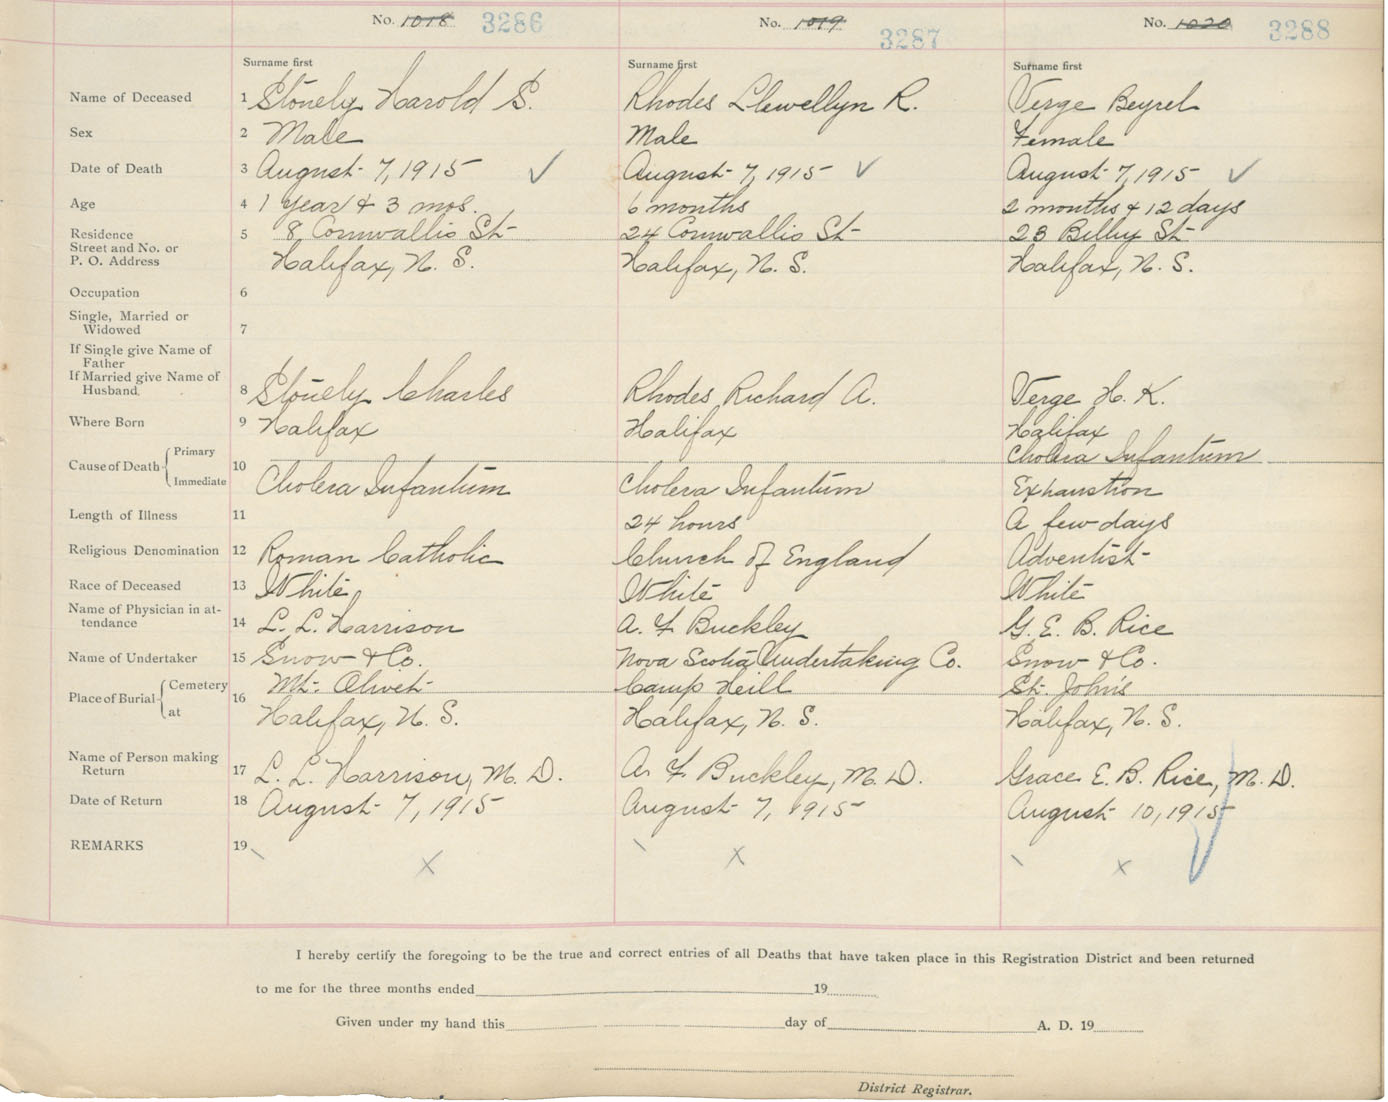 No. 1018 3286 No. 1019 3287 No. 1020 3288
Surname first Surname first Surname first
Name of Deceased 1 Stonely Harold S. Rhodes Llewellyn R. Verge Beyrel
Sex 2 Male Male Female
Date of Death 3 August 7, 1915 ✓ August 7, 1915 ✓ August 7, 1915 ✓
Age 4 1 year & 3 mos. 6 months 2 months & 12 days
Residence 5 8 Cornwallis St 24 Cornwallis St 23 Bilby St
Street and No. or
P. O. Address Halifax, N. S. Halifax, N. S. Halifax, N. S.
Occupation 6
Single, Married or
Widowed 7
If Single give Name of
Father
If Married give Name of
Husband. 8 Stonely Charles Rhodes Richard A. Verge H. K.
Where Born 9 Halifax Halifax Halifax
Cause of Death Primary 10 Cholera Infantum
Immediate Cholera Infantum Cholera Infantum Exhaustion
Length of Illness 11 24 hours A few days
Religious Denomination 12 Roman Catholic Church of England Adventist
Race of Deceased 13 White White White
Name of Physician in at-
tendance 14 L. L. Harrison A. F. Buckley G. E. B. Rice
Name of Undertaker 15 Snow & Co. Nova Scotia Undertaking Co. Snow & Co.
Place of Burial Cemetery 16 Mt. Olivet Camp Heill St. John's
at Halifax, N. S. Halifax, N. S. Halifax, N. S.
Name of Person making
Return 17 L. L. Harrison, M. D. A. F. Buckley, M. D. Grace E. B. Rice, M. D.
Date of Return 18 August 7, 1915 August 7, 1915 August 10, 1915
REMARKS 19 x x x
I hereby certify the foregoing to be the true and correct entries of all Deaths that have taken place in this Registration District and been returned
to me for the three months ended 19
Given under my hand this day of A. D. 19
District Registrar.